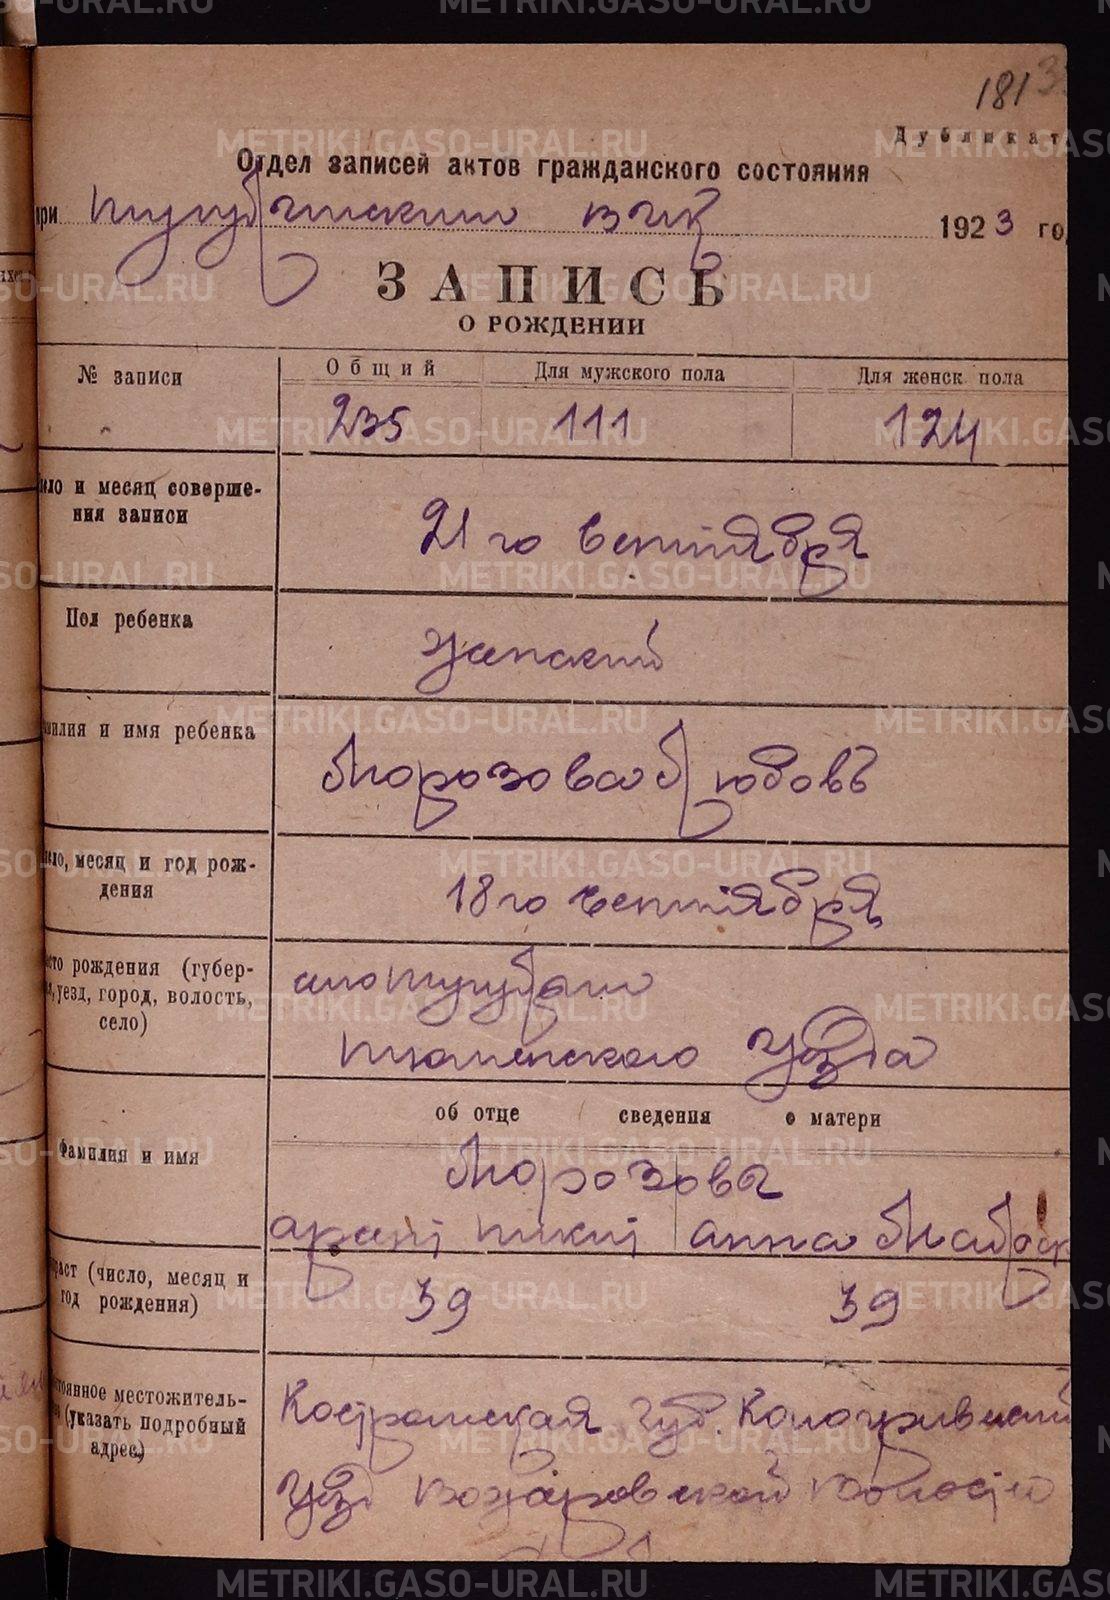 181
Дубликат
Отдел записей актов гражданского состояния
при Тугулымским ВИК 1923 го
ЗАПИСЬ
О РОЖДЕНИИ
№ записи Общий Для мужского пола Для женск. пола
235 111 124
ло и месяц соверше-
ния записи
21 го Сентября
Пол ребенка Женский
милия и имя ребенка
Морозова Любовь
ло, месяц и год рож-
дения
18 го Сентября
сто рождения (губер-
я, уезд, город, волость,
село)
Тюменского Уезда
об отце сведения о матери
Фамилия и имя Морозовы
Анна
раст (число, месяц и
год рождения)
39 39
тоянное местожитель-
(указать подробный
адрес)
Костромская губ. Кологривский
Уезд волости
METRIKI.GASO-URAL.RU